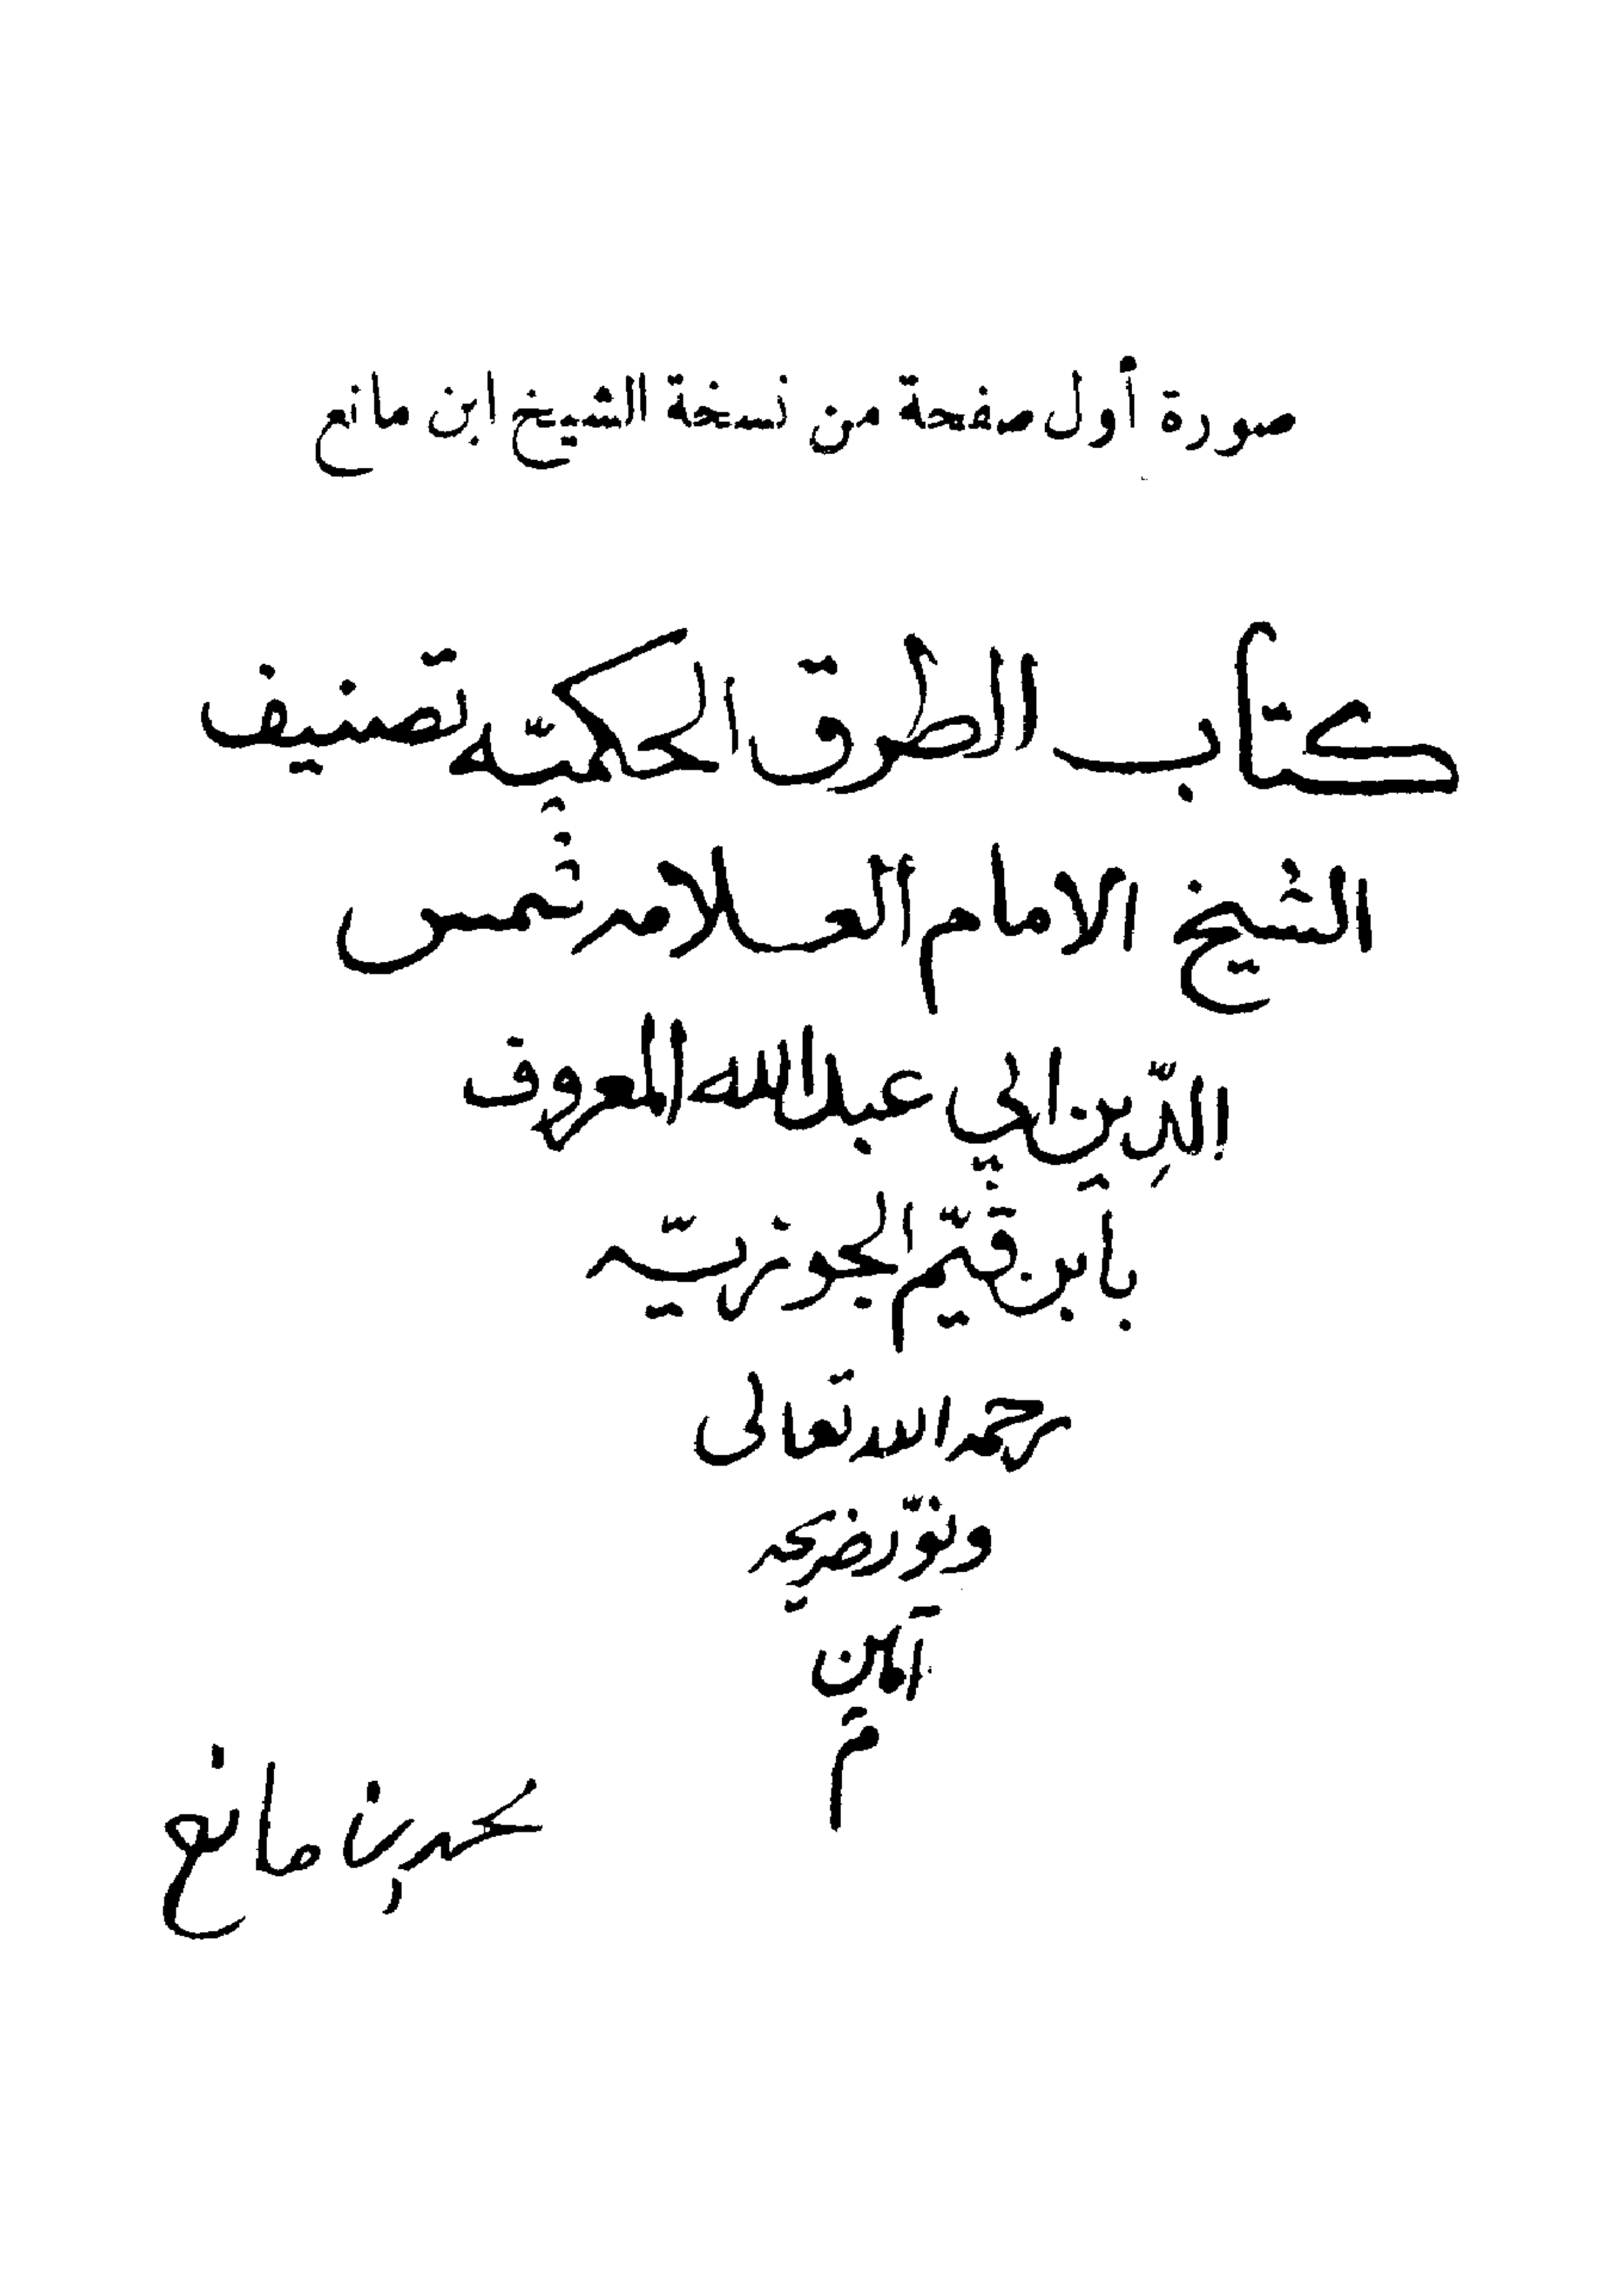 صورة أول صفحة من نسخة الشيخ ابن مانع
كتاب الطرق الحكميّه تصنيف
الشيخ الامام العلامه شمس
الدِّين ابي عبد الله المعروف
بابن قيّم الجوزيّه
رحمه الله تعالى
ونوّر ضريحه
آمين
م
محمد بن مانع